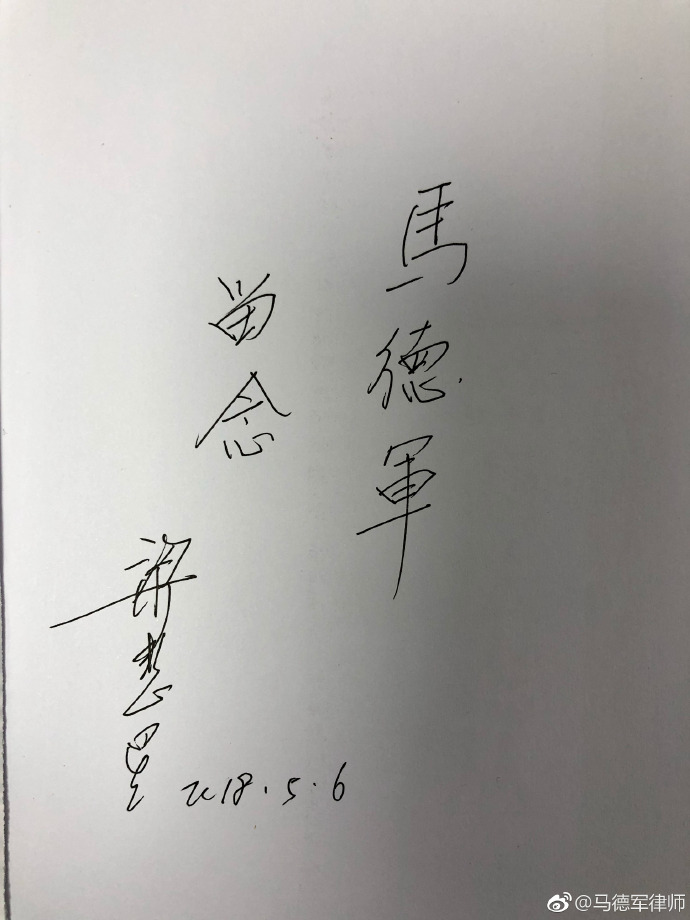 馬德軍
留念
梁慧星
2018.5.6
@马德军律师